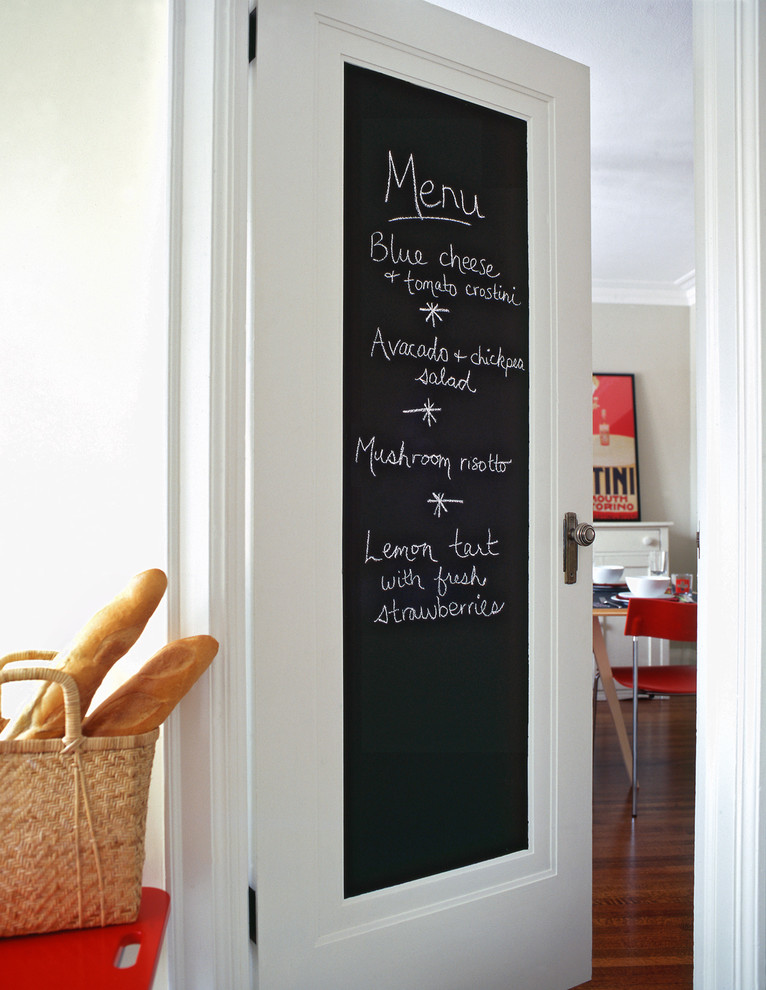 Menu
Blue cheese
+ tomato crostini
Avacado + chickpea
salad
Mushroom risotto
Lemon tart
with fresh
strawberries
TINI
MOUTH
TORINO